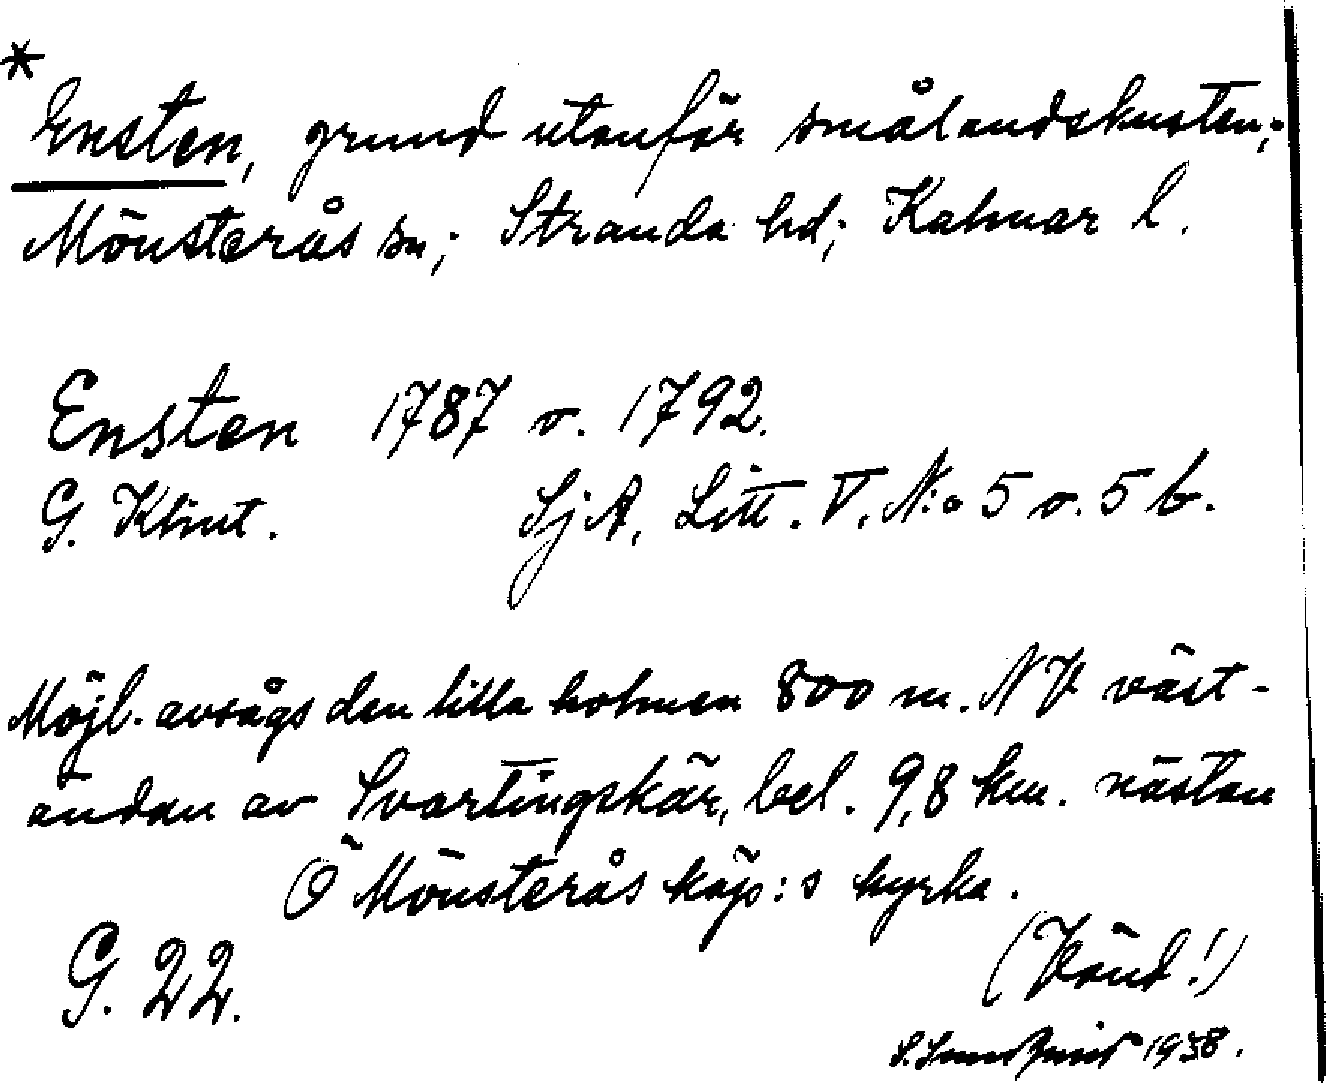 *
Ensten, grund utanför smålandskusten;
Mönsterås sn; Stranda hd; Kalmar l.
Ensten 1787 o. 1792.
G. Klint. SjA, Litt. V, N:o 5 o. 5 b.
Möjl. avsågs den lilla holmen 800 m. NV väst-
ändan av Svartingskär, bel. 9,8 km. nästan
Ö Mönsterås köp:s kyrka.
G. 22. (Vänd!)
S. 1938.